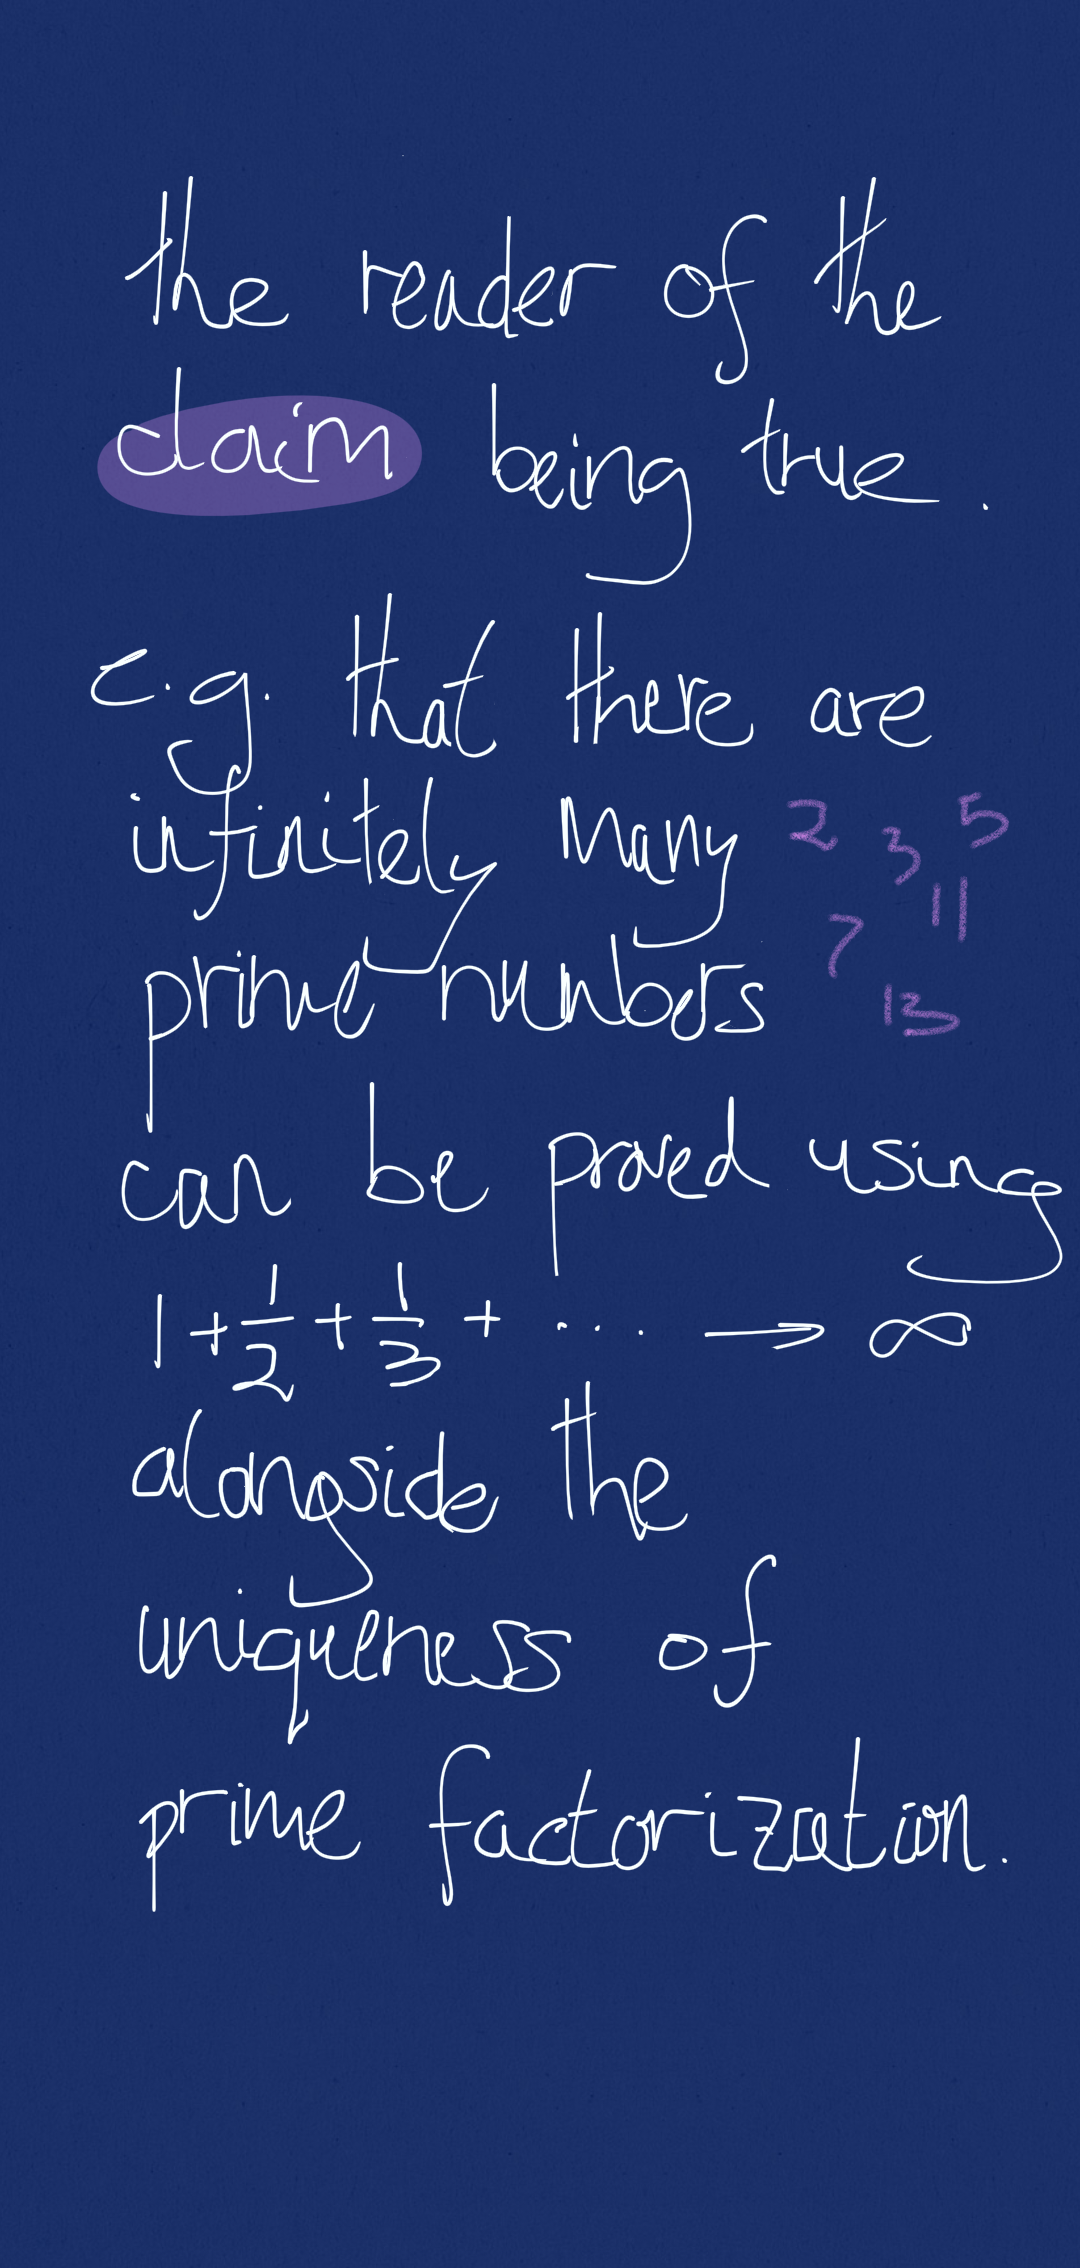 the reader of the
claim being true.
e.g. that there are
infinitely many 2 3 5
7 11
prime numbers 13
can be proved using
1 + 1/2 + 1/3 + ... → ∞
alongside the
uniqueness of
prime factorization.